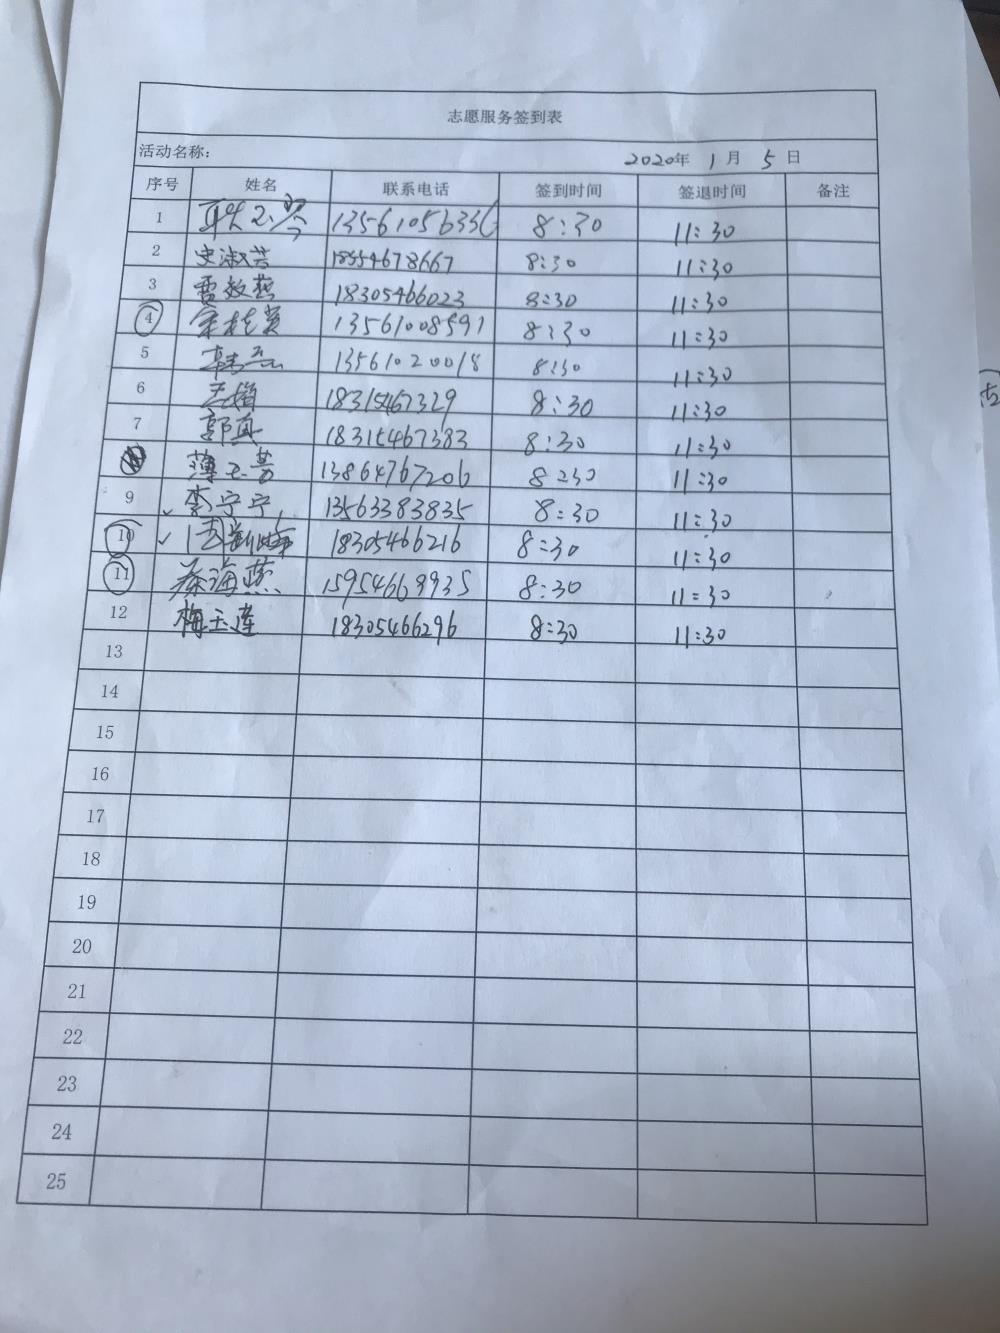 志愿服务签到表
活动名称: 2020年 1月 5日
序号 姓名 联系电话 签到时间 签退时间 备注
1 13561056336 8:30 11:30
2 史淑芸 18554678667 8:30 11:30
3 雷效燕 18305466023 8:30 11:30
4 13561008591 8:30 11:30
5 13561020018 8:30 11:30
6 18315467329 8:30 11:30
7 郭真 18315467383 8:30 11:30
薄玉芳 13864767206 8:30 11:30
9 李宁宁 13563383835 8:30 11:30
10 18305466216 8:30 11:30
11 秦海燕 15954669935 8:30 11:30
12 梅玉莲 18305466296 8:30 11:30
13
14
15
16
17
18
19
20
21
22
23
24
25